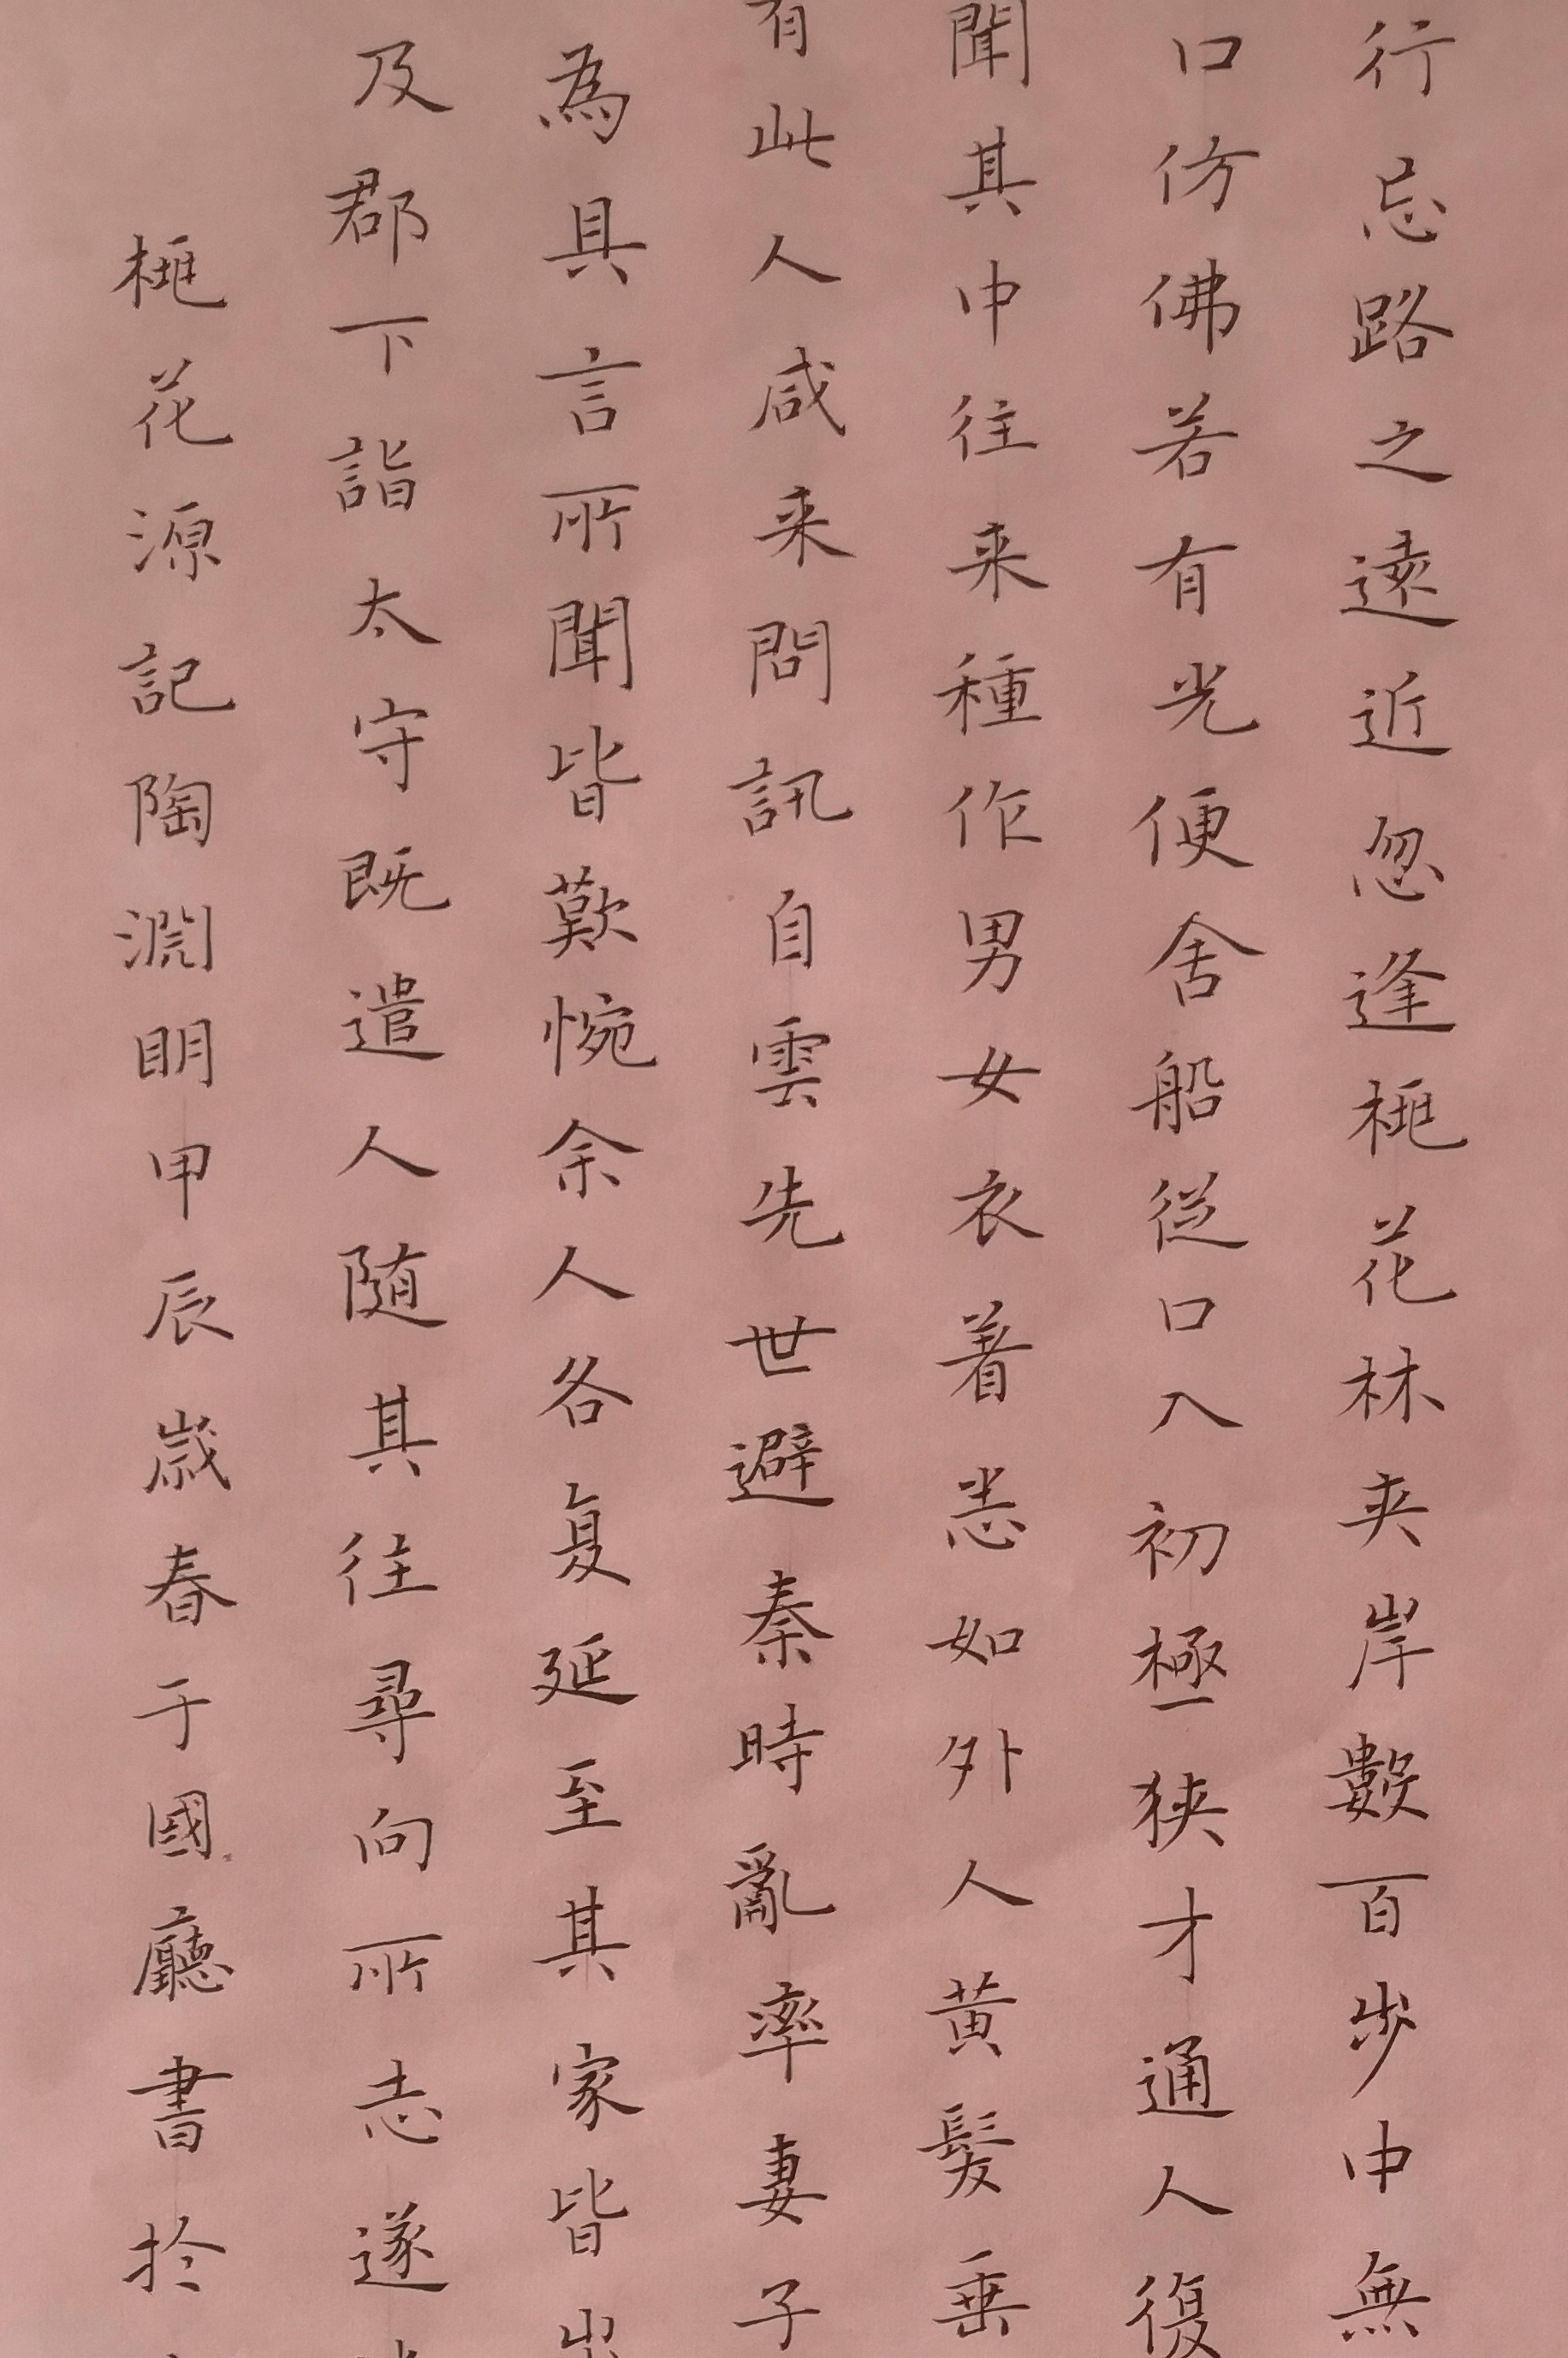 行忘路之遠近忽逢桃花林夾岸數百步中無
口仿佛若有光便舍船從口入初極狹才通人復
聞其中往来種作男女衣著悉如外人黃髮垂
有此人咸来問訊自雲先世避秦時亂率妻子
為具言所聞皆歎惋余人各复延至其家皆出
及郡下詣太守既遣人随其往尋向所志遂
桃花源記陶淵明甲辰歲春于國廳書於